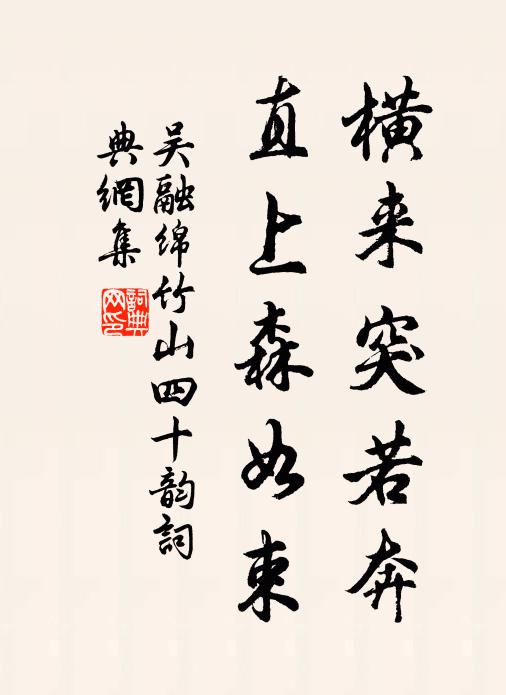 橫来突若奔
直上森如束
吴融绵竹山四十韵詞
典網集
詞典网印